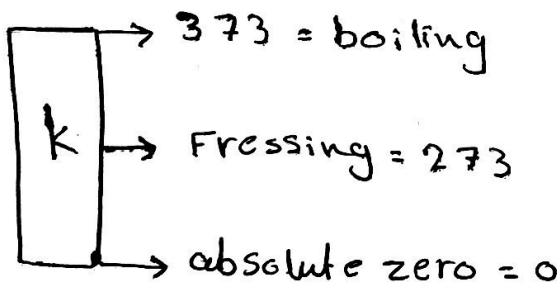 373 = boiling
K
Fressing = 273
absolute zero = 0